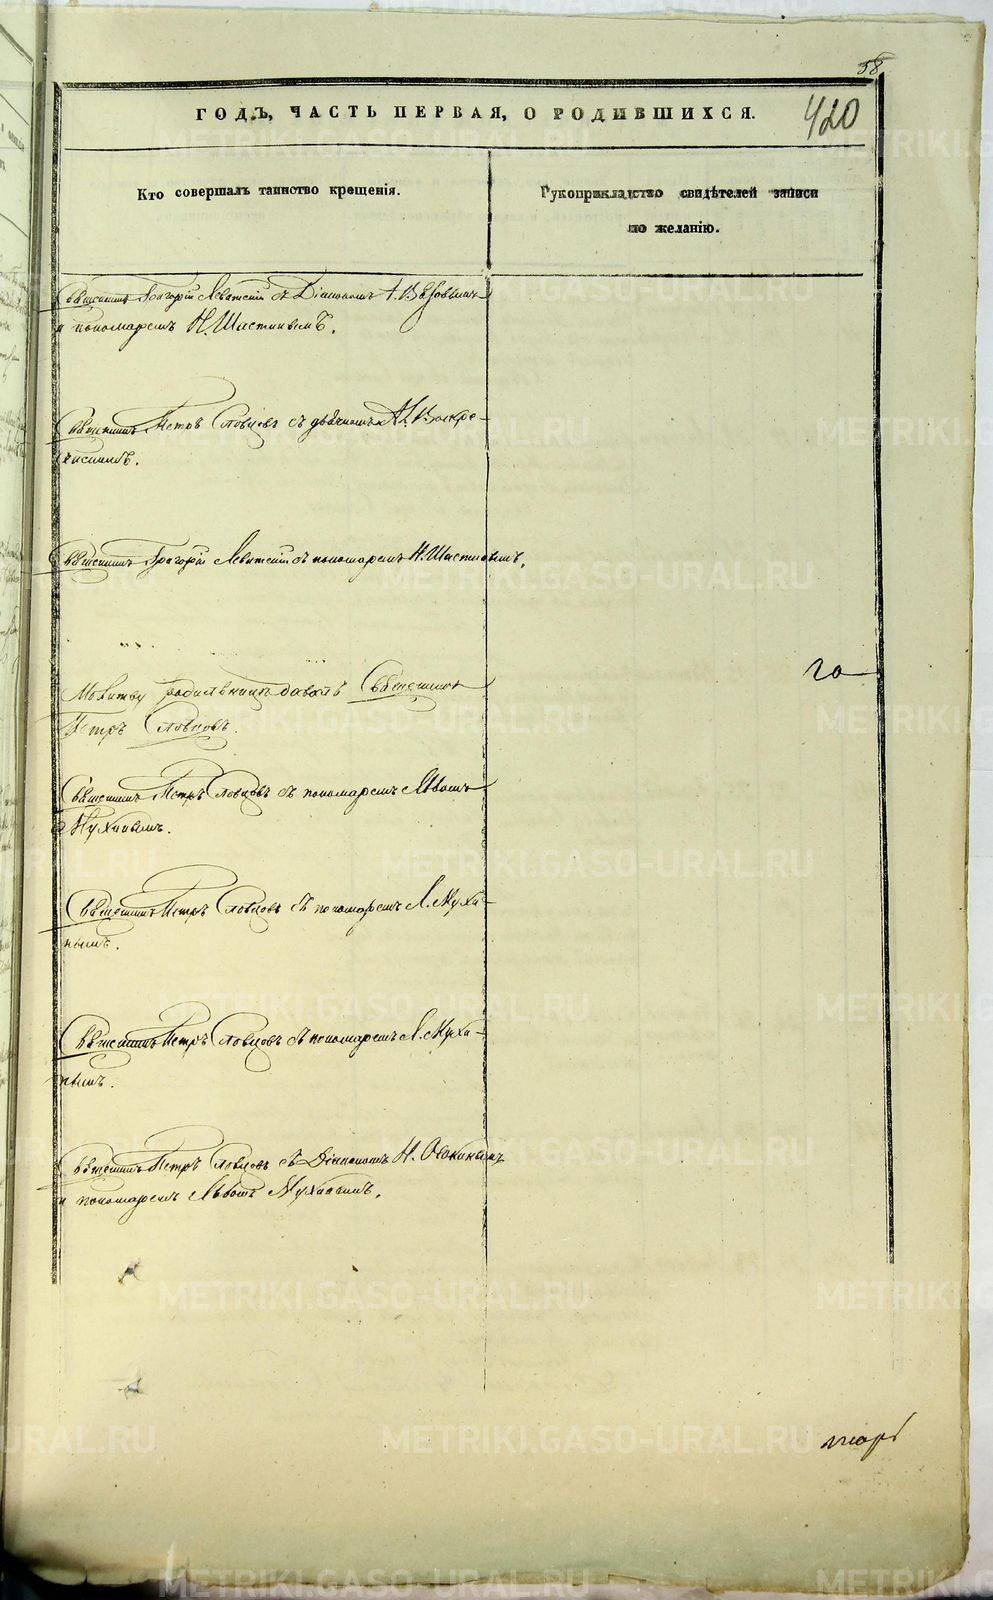 58
ГОДЪ, ЧАСТЬ ПЕРВАЯ, О РОДИВШИХСЯ.
420
Кто совершалъ таинство крещенія.
Рукоприкладство свидѣтелей записи
по желанію.
Священникъ Григорій Левитскій съ Діакономъ
и пономаремъ Н. Шастинымъ.
Священникъ Петръ Словцовъ съ дьячкомъ А. Воскре-
сенскимъ.
Священникъ Григорій Левитскій съ пономаремъ Н. Шастинымъ.
Молитву родильницѣ давалъ Священникъ
Петръ Словцовъ.
го
Священникъ Петръ Словцовъ съ пономаремъ Львомъ
Мухинымъ.
Священникъ Петръ Словцовъ съ пономаремъ Л. Мухи-
нымъ.
Священникъ Петръ Словцовъ съ пономаремъ Л. Мухи-
нымъ.
Священникъ Петръ Словцовъ съ Діакономъ Н. Осокинымъ
и пономаремъ Львомъ Мухинымъ.
METRIKI.GASO-URAL.RU